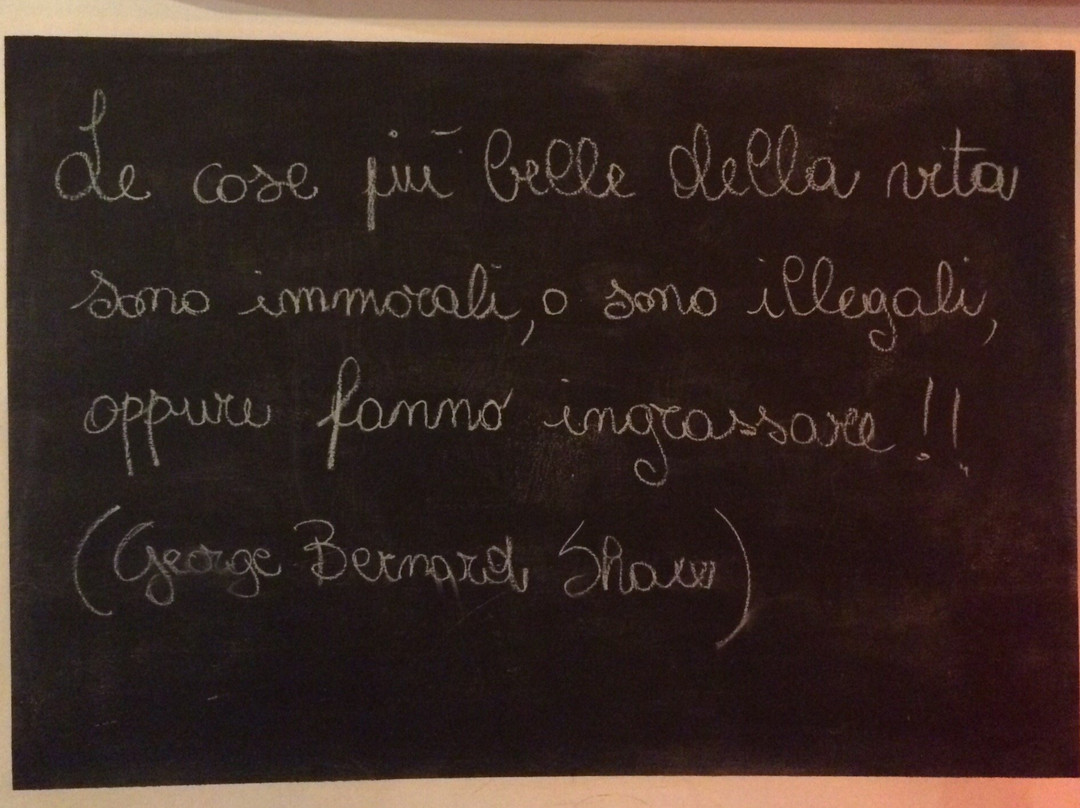 Le cose più belle della vita
sono immorali, o sono illegali,
oppure fanno ingrassare!!
(George Bernard Shaw)